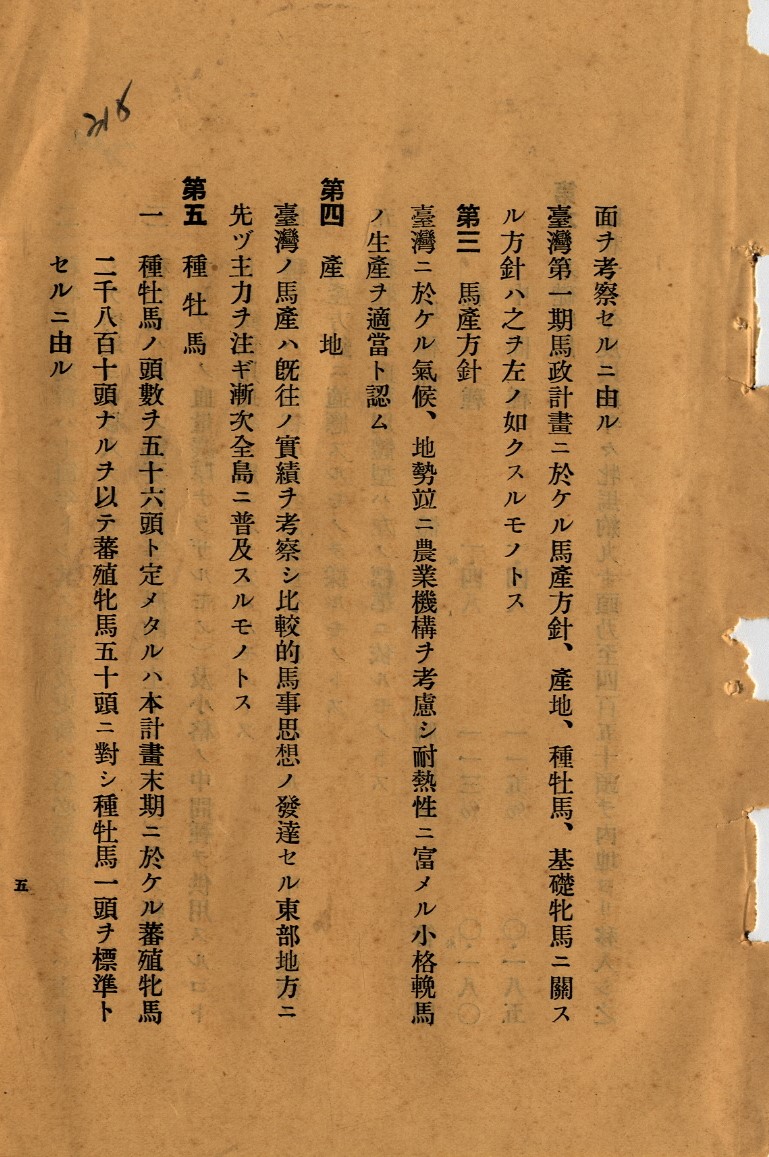 面ヲ考察セルニ由ル
臺灣第一期馬政計畫ニ於ケル馬產方針、產地、種牡馬、基礎牝馬ニ關ス
ル方針ハ之ヲ左ノ如クスルモノトス
第三　馬產方針
臺灣ニ於ケル氣候、地勢竝ニ農業機構ヲ考慮シ耐熱性ニ富メル小格輓馬
ノ生產ヲ適當ト認ム
第四　產　地
臺灣ノ馬產ハ旣往ノ實績ヲ考察シ比較的馬事思想ノ發達セル東部地方ニ
先ヅ主力ヲ注ギ漸次全島ニ普及スルモノトス
第五　種牡馬
一　種牡馬ノ頭數ヲ五十六頭ト定メタルハ本計畫末期ニ於ケル蕃殖牝馬
二千八百十頭ナルヲ以テ蕃殖牝馬五十頭ニ對シ種牡馬一頭ヲ標準ト
セルニ由ル
五